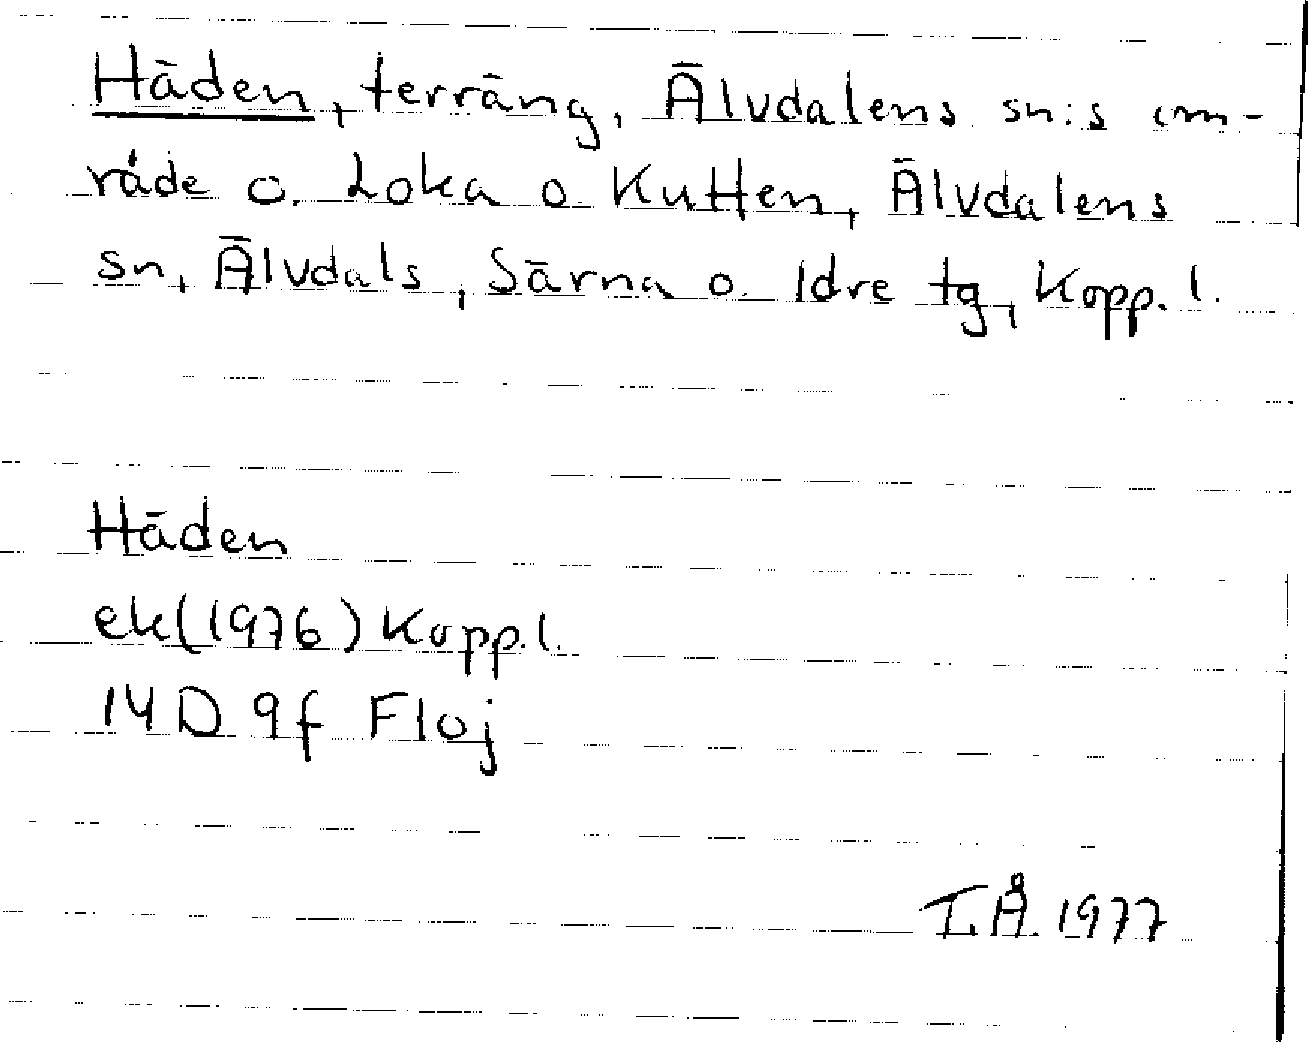 Häden, terräng, Älvdalens sn:s om-
råde o. Loka o Kutten, Älvdalens
sn, Älvdals, Särna o. Idre tg, Kopp. l.
Häden
ek(1976) Kopp.l.
14D 9f Floj
I.Å. 1977